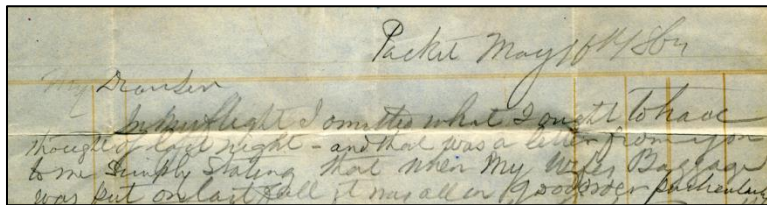 Packet May 10th 186
My Dear Sir
In my flight I omitted what I ought to have
thought of last night - and that was a letter from you
to me Simply Stating that when My Wifes Baggage
was put on last fall it was all in good order particularly